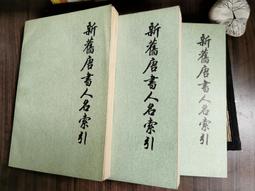 新舊唐書人名索引
新舊唐書人名索引
新舊唐書人名索引